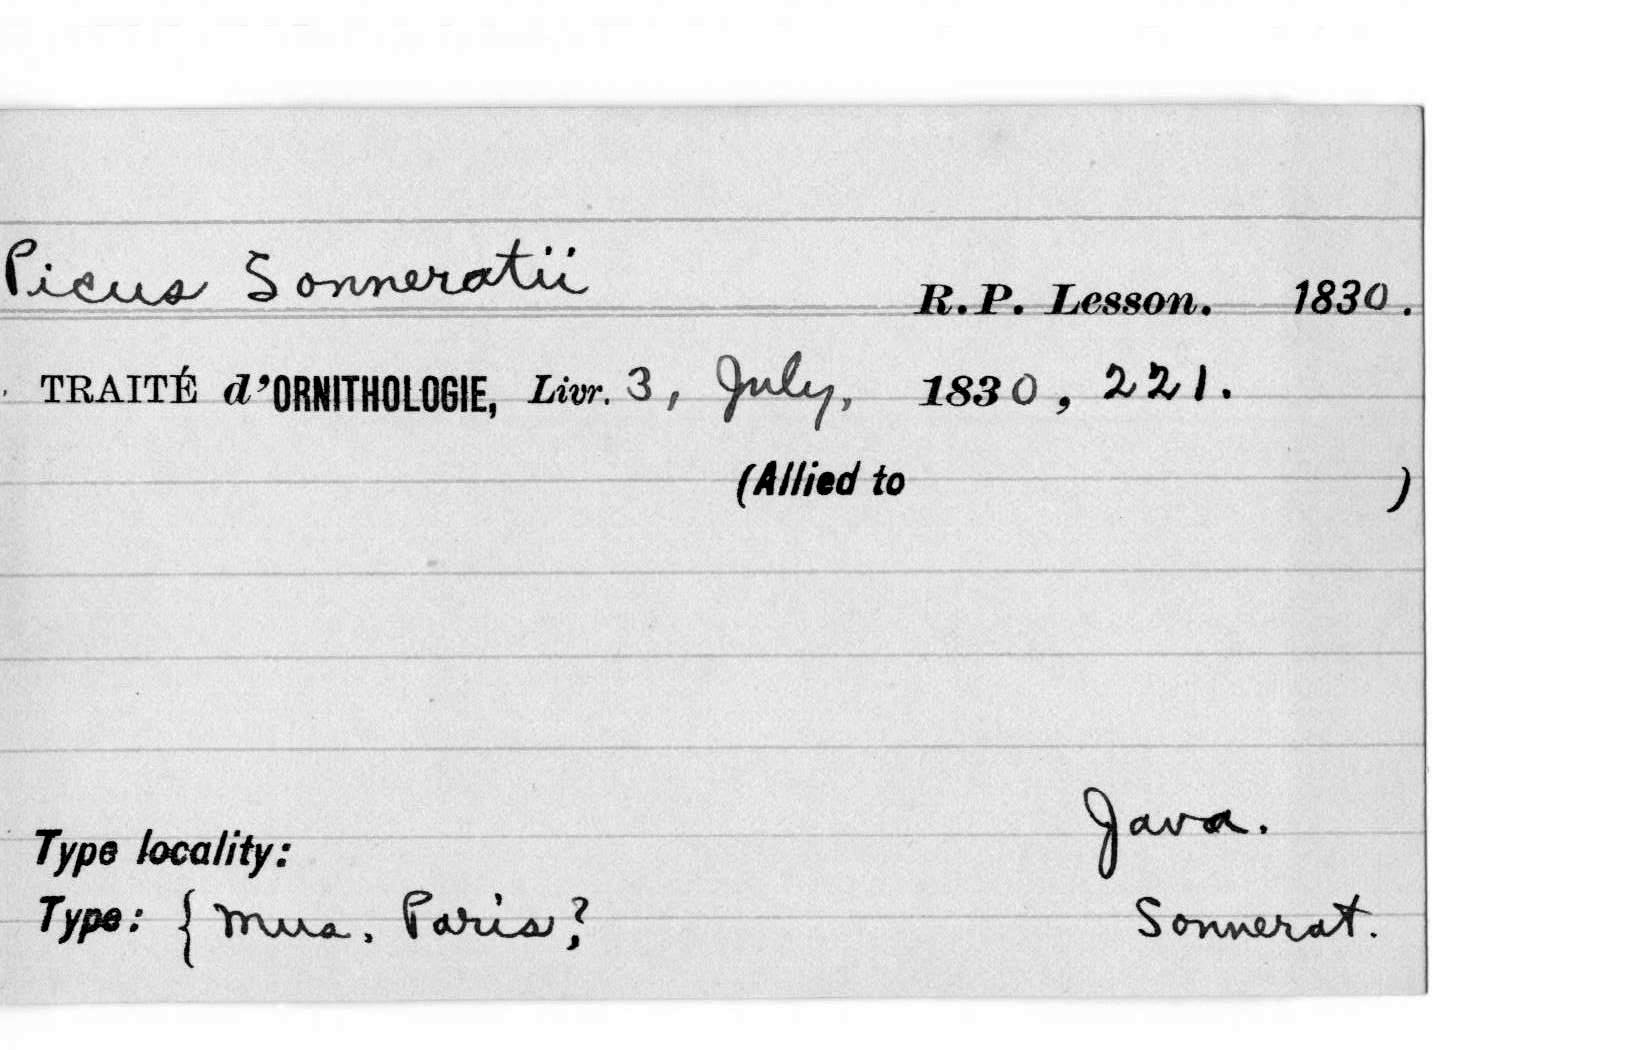 Picus Sonneratii R. P. Lesson. 1830.
TRAITÉ d'ORNITHOLOGIE, Livr. 3, July, 1830, 221.
(Allied to )
Java.
Type locality:
Type: { Mus. Paris? Sonnerat.